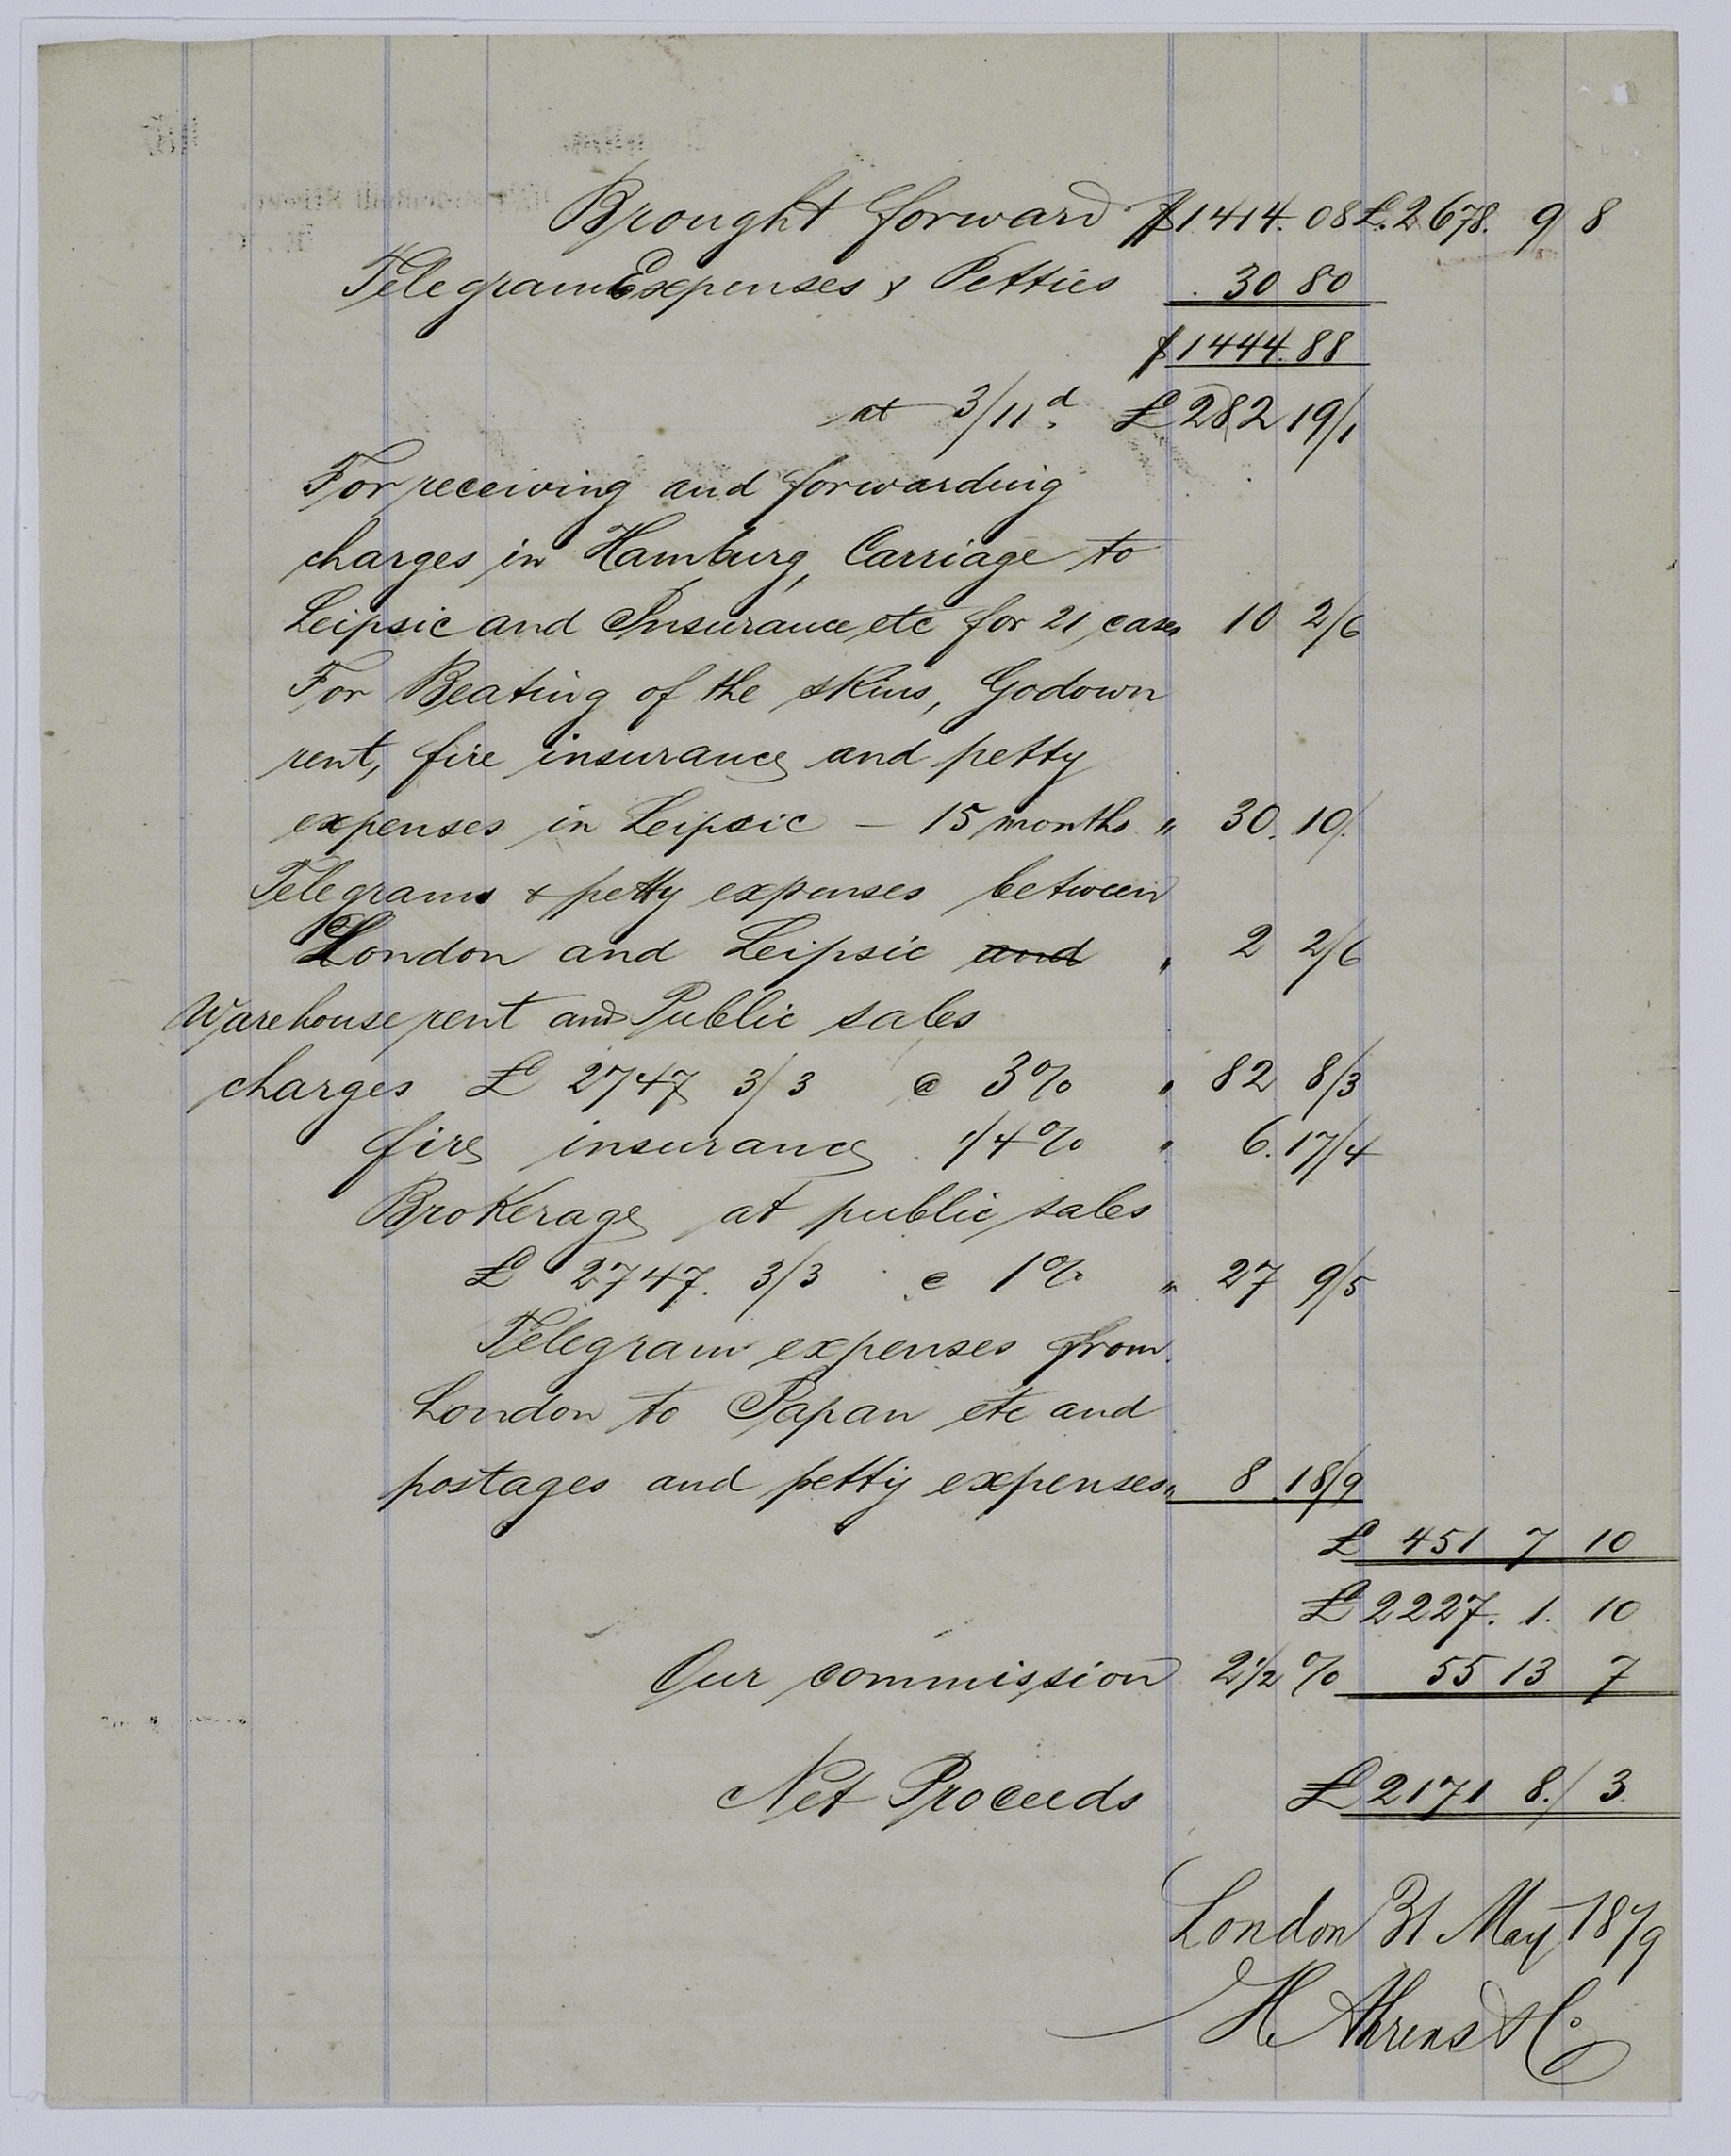 Brought forward $1414.08 £.2678. 9 8
Telegram Expenses & Petties . 30 80
$1444.88
at 3/11d. £282 19/1
For receiving and forwarding
charges in Hamburg, Carriage to
Leipsic and Insurance etc for 21 cases 10 2/6
For Beating of the skins, Godown
rent, fire insurance and petty
expenses in Leipsic — 15 months " 30. 10/.
Telegrams & petty expenses between
London and Leipsic and " 2 2/6
Warehouse rent and Public sales
charges £ 2747 3/3 @ 3% " 82 8/3
fire insurance 1/4% " 6.17/4
Brokerage at public sales
£ 2747. 3/3 @ 1% " 27 9/5
Telegram expenses from
London to Japan etc and
postages and petty expenses " 8 18/9
£ 451 7 10
£2227. 1. 10
Our commission 2 1/2 % 55 13 7
Net Proceeds £2171 8./ 3.
London 31 May 1879
H. Ahrens & Co